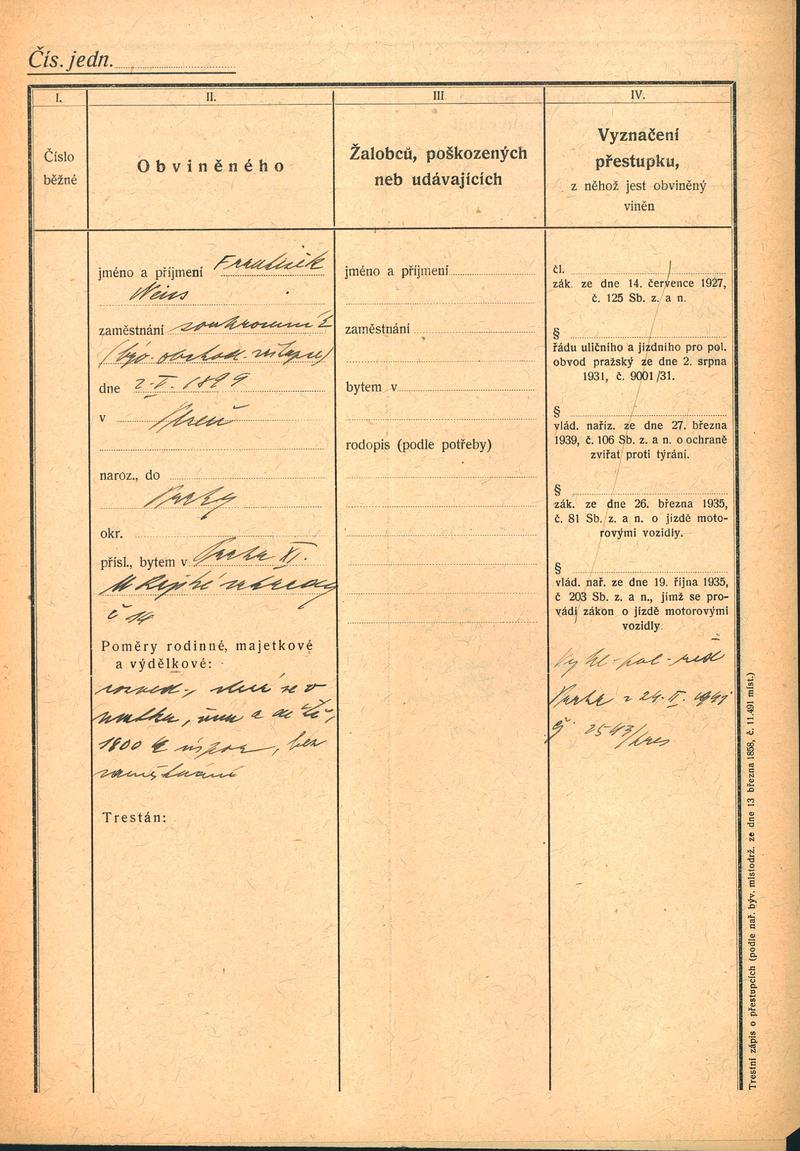 Čís. jedn.
I.
Číslo
běžné
II.
Obviněného
jméno a příjmení František
Weiss
zaměstnání soukromník
(býv. obchod. zástupce)
dne 2.V. 1899
v
naroz., do
Prahy
okr.
přísl., bytem v Praha XI.
č 14
Poměry rodinné, majetkové
a výdělkové:
rozved.,
matka,
1800 K úspor, bez
zaměstnání
Trestán:
III.
Žalobců, poškozených
neb udávajících
jméno a příjmení
zaměstnání
bytem v
rodopis (podle potřeby)
IV.
Vyznačení
přestupku,
z něhož jest obviněný
viněn
čl.
zák. ze dne 14. července 1927,
č. 125 Sb. z. a n.
§
řádu uličního a jízdního pro pol.
obvod pražský ze dne 2. srpna
1931, č. 9001/31.
§
vlád. naříz. ze dne 27. března
1939, č. 106 Sb. z. a n. o ochraně
zvířat proti týrání.
§
zák. ze dne 26. března 1935,
č. 81 Sb. z. a n. o jízdě moto-
rovými vozidly.
§
vlád. nař. ze dne 19. října 1935,
č 203 Sb. z. a n., jímž se pro-
vádí zákon o jízdě motorovými
vozidly
Vyhl. pol. řed
Praha z 24. II. 1941
č. 2543/pres
Trestní zápis o přestupcích (podle nař. býv. místodrž. ze dne 13 března 1858, č. 11.491 míst.)